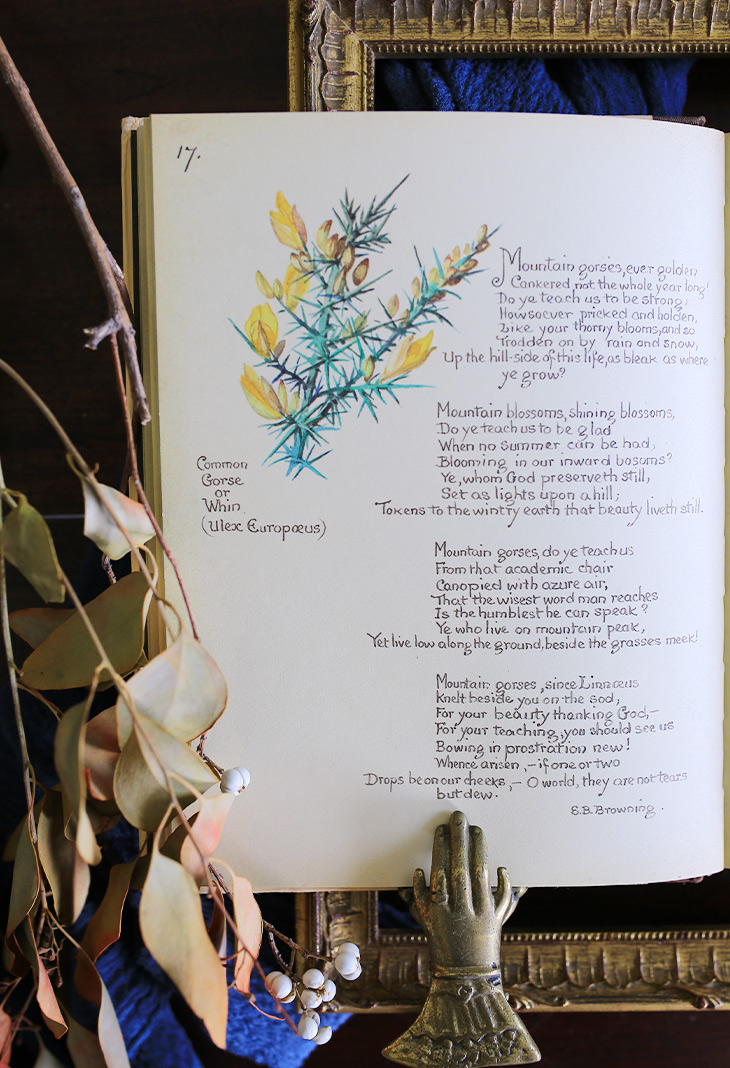 17.
Mountain gorses, ever golden
Cankered not the whole year long!
Do ye teach us to be strong,
Howsoever pricked and holden,
Like your thorny blooms, and so
Trodden on by rain and snow,
Up the hill-side of this life, as bleak as where
ye grow?
Mountain blossoms, shining blossoms,
Do ye teach us to be glad
When no summer can be had,
Blooming in our inward bosoms?
Ye, whom God preserveth still,
Set as lights upon a hill;
Tokens to the wintry earth that beauty liveth still.
Common
Gorse
or
Whin.
(Ulex Europœus)
Mountain gorses, do ye teach us
From that academic chair
Canopied with azure air,
That the wisest word man reaches
Is the humblest he can speak?
Ye who live on mountain peak,
Yet live low along the ground, beside the grasses meek!
Mountain gorses, since Linnœus
Knelt beside you on the sod,
For your beauty thanking God,—
For your teaching, you should see us
Bowing in prostration new!
Whence arisen,—if one or two
Drops be on our cheeks,—O world, they are not tears
but dew.
E.B. Browning.